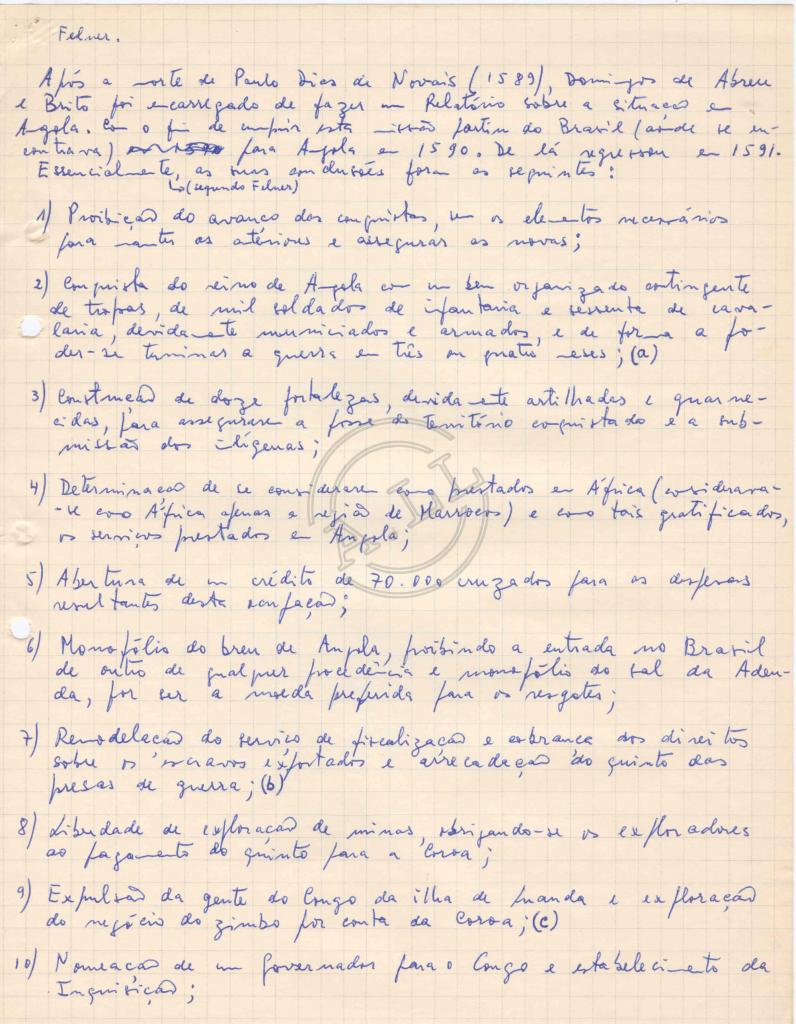 Felner.
Após a morte de Paulo Dias de Novais (1589), Domingos de Abreu
e Brito foi encarregado de fazer um Relatório sobre a situação em
Angola. Com o fim de cumprir esta missão partiu do Brasil (aonde se en-
contrava) para Angola em 1590. De lá regressou em 1591.
Essencialmente, as suas conclusões foram as seguintes:
(segundo Felner)
1) Proibição do avanço das conquistas, sem os elementos necessários
para manter as anteriores e assegurar as novas;
2) Conquista do reino de Angola com um bem organizado contingente
de tropas, de mil soldados de infantaria e sessenta de cava-
laria, devidamente municiados e armados, e de forma a po-
der-se terminar a guerra em três ou quatro meses; (a)
3) Construção de doze fortalezas, devidamente artilhadas e guarne-
cidas, para assegurarem a posse do território conquistado e a sub-
missão dos indígenas;
4) Determinação de se considerarem como prestados em África (considerava-
-se como África apenas a região de Marrocos) e como tais gratificados,
os serviços prestados em Angola;
5) Abertura de um crédito de 70.000 cruzados para as despesas
resultantes desta ocupação;
6) Monopólio do breu de Angola, proibindo a entrada no Brasil
de outro de qualquer procedência e monopólio do sal da Aden-
da, por ser a moeda preferida para os resgates;
7) Remodelação do serviço de fiscalização e cobrança dos direitos
sobre os escravos exportados e arrecadação do quinto das
presas de guerra; (b)
8) Liberdade de exploração de minas, obrigando-se os exploradores
ao pagamento do quinto para a Coroa;
9) Expulsão da gente do Congo da ilha de Luanda e exploração
do negócio do zimbo por conta da Coroa; (c)
10) Nomeação de um Governador para o Congo e estabelecimento da
Inquisição;
A LL